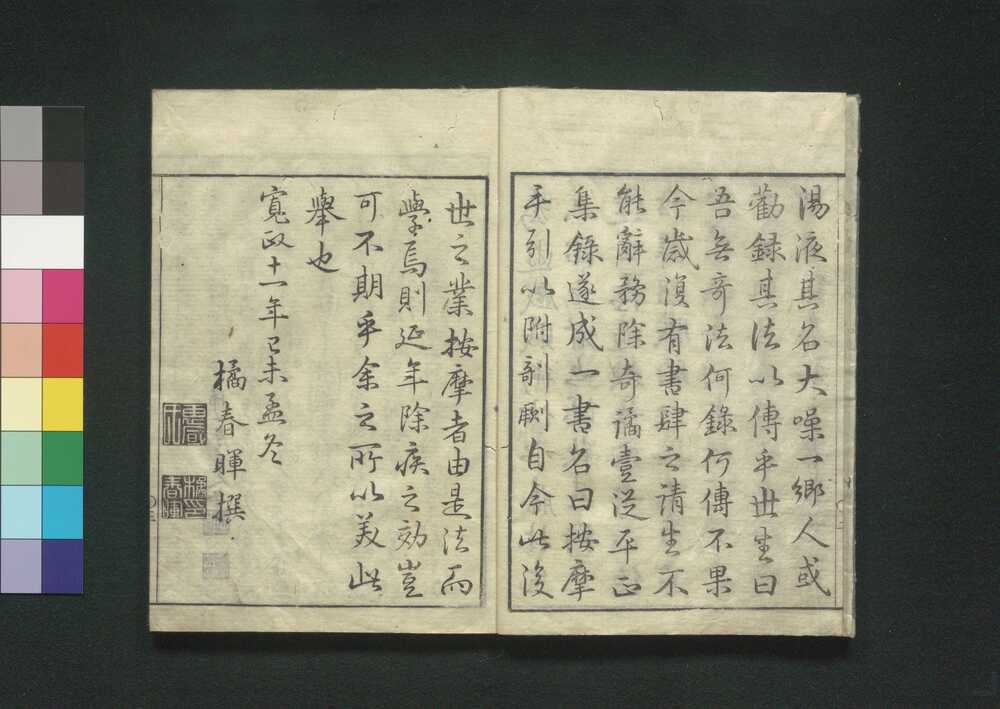 湯液其名大噪一鄉人或
勸録其法以傳乎世生曰
吾無奇法何録何傳不果
今歲復有書肆之請生不
能辭務除奇譎壹從平正
集錄遂成一書名曰按摩
手引以附剞劂自今此後
世之業按摩者由是法而
學焉則延年除疾之効豈
可不期乎余之所以美此
舉也
寬政十一年己未孟冬
橘春暉撰